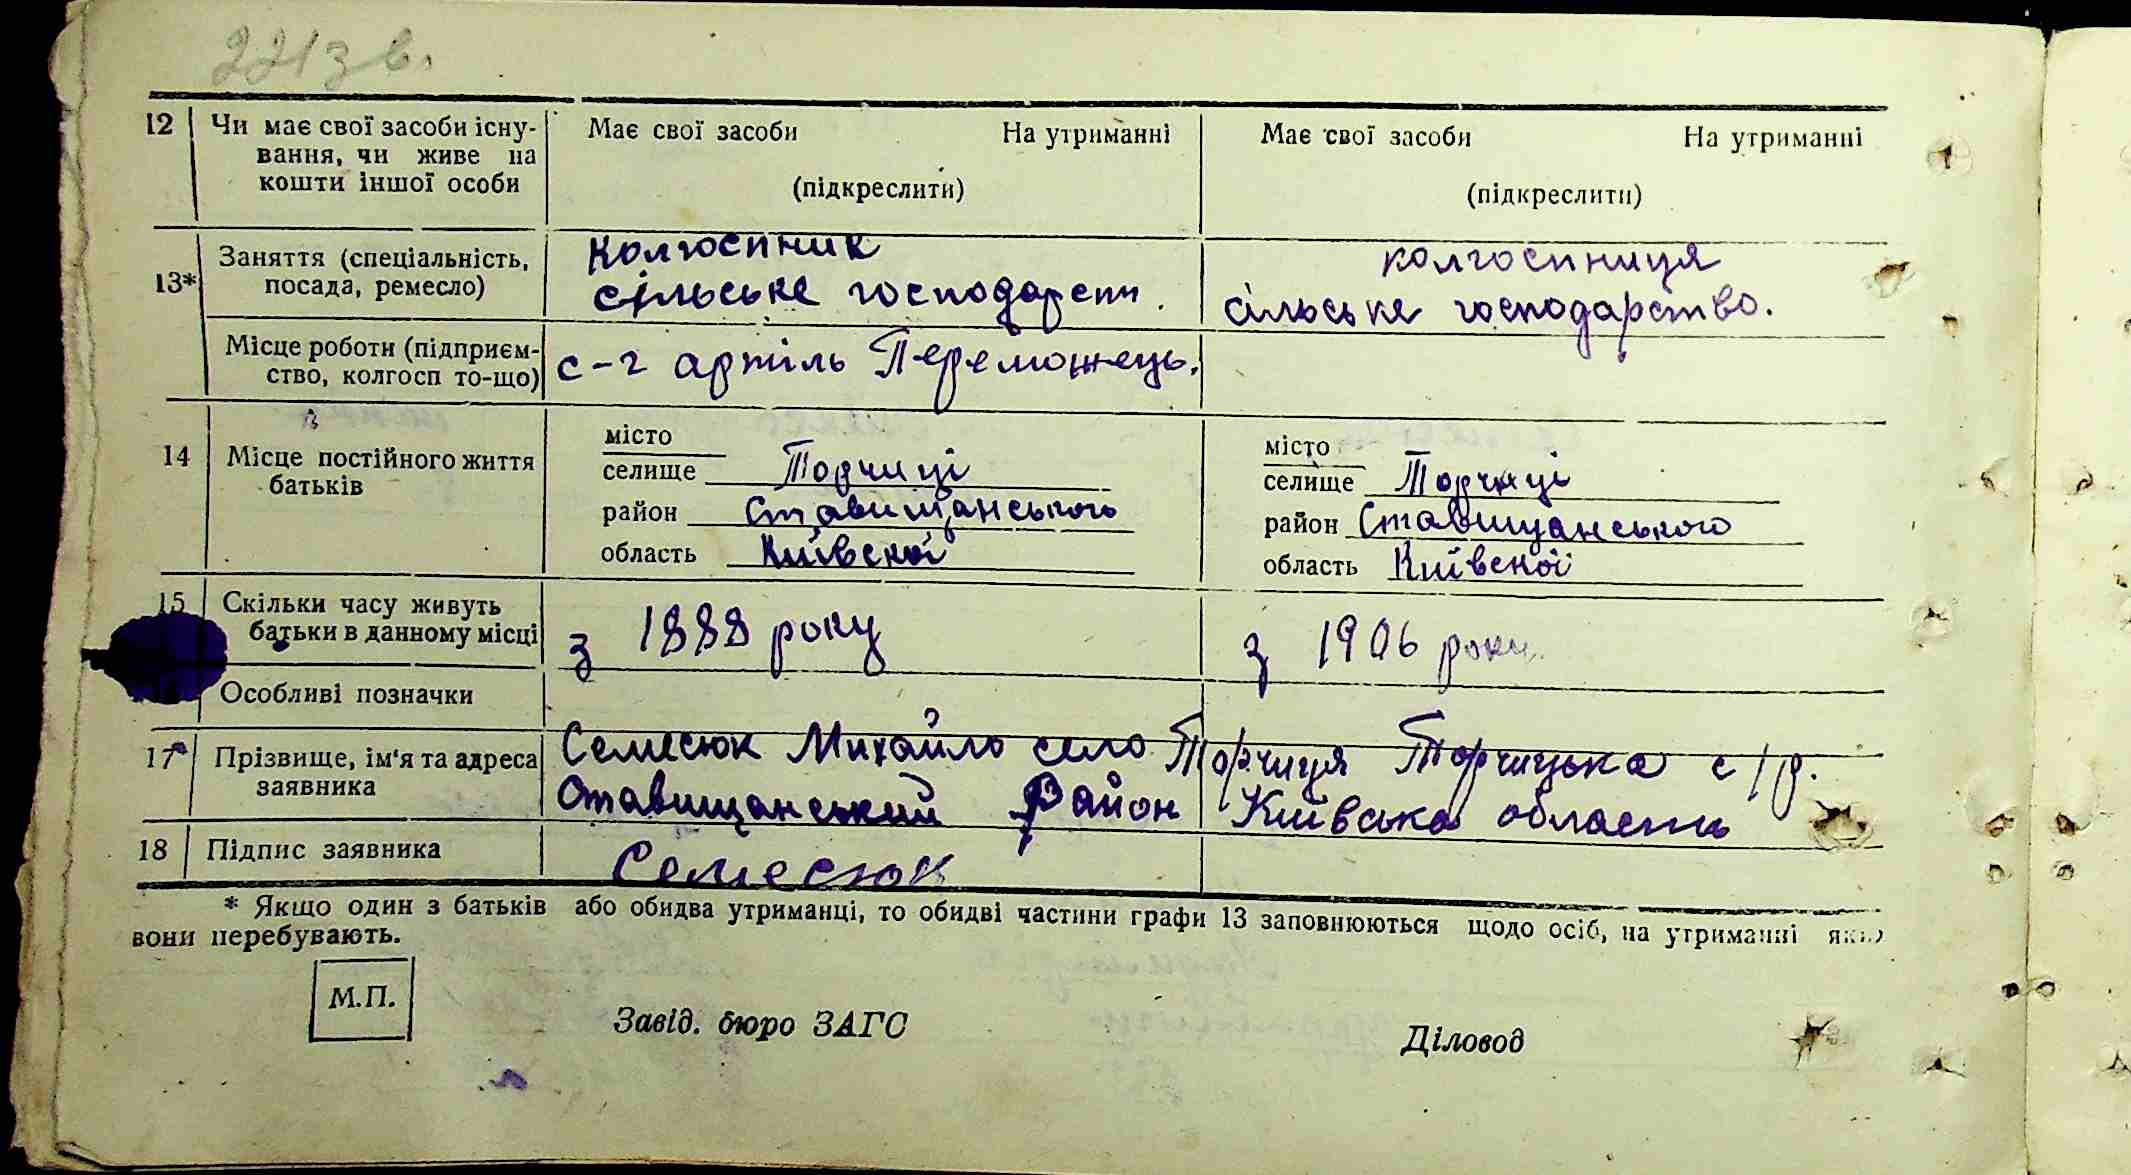 221зв.
12 Чи має свої засоби існу- Має свої засоби На утриманні Має свої засоби На утриманні
вання, чи живе на
кошти іншої особи (підкреслити) (підкреслити)
13* Заняття (спеціальність, колгоспник колгоспниця
посада, ремесло) сільське господарств. сільське господарство.
Місце роботи (підприєм- с-г артіль Переможець.
ство, колгосп то-що)
14 Місце постійного життя місто місто
батьків селище Торчиці селище Торчиці
район Ставищанського район Ставищанського
область Київської область Київської
15 Скільки часу живуть з 1888 року з 1906 року
батьки в данному місці
Особливі позначки
17 Прізвище, ім'я та адреса Семесюк Михайло село Торчиця Торчицька с/р.
заявника Ставищанський Район Київська область
18 Підпис заявника Семесюк
* Якщо один з батьків або обидва утриманці, то обидві частини графи 13 заповнюються щодо осіб, на утриманні яких
вони перебувають.
М.П. Завід. бюро ЗАГС Діловод